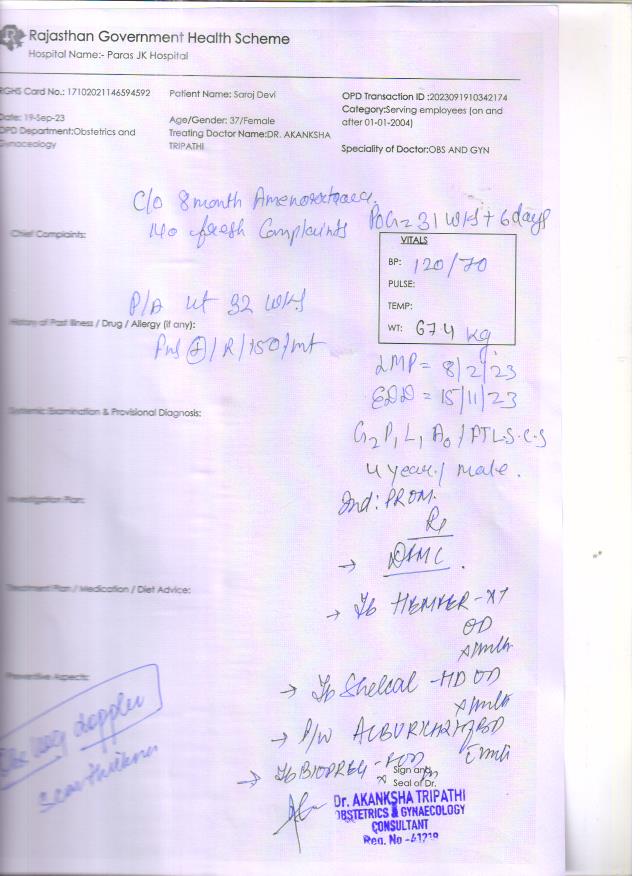 Rajasthan Government Health Scheme
Hospital Name:- Paras JK Hospital
RGHS Card No.: 17102021146594592
Patient Name: Saroj Devi
OPD Transaction ID :2023091910342174
Category:Serving employees (on and after 01-01-2004)
Date: 19-Sep-23
Age/Gender: 37/Female
OPD Department:Obstetrics and Gynaecology
Treating Doctor Name:DR. AKANKSHA TRIPATHI
Speciality of Doctor:OBS AND GYN
C/o 8 month Amenorrhoea
POG = 31 Wks + 6 days
Chief Complaints:
No fresh Complaints
VITALS
BP: 120/70
PULSE:
TEMP:
WT: 67.4 kg
P/A ut 32 Wks
History of Past Illness / Drug / Allergy (if any):
FHS (+) / R / 150/mt
LMP = 8/2/23
EDD = 15/11/23
Systemic Examination & Provisional Diagnosis:
G2 P1 L1 A0 / FTLSCS
4 year / male.
Investigation Plan:
Ind: PROM.
Rx
→ DFMC.
Treatment Plan / Medication / Diet Advice:
→ Tb HEMFER-XT
OD
Preventive Aspects:
→ Tb Shelcal-HD OD
doppler
Scar thickness
Sign and
Seal of Dr.
Dr. AKANKSHA TRIPATHI
OBSTETRICS & GYNAECOLOGY
CONSULTANT
Reg. No -41219